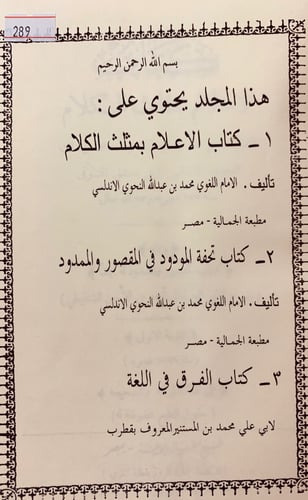 289
بسم الله الرحمن الرحيم
هذا المجلد يحتوي على :
١ ـ كتاب الاعلام بمثلث الكلام
تأليف . الامام اللغوي محمد بن عبدالله النحوي الاندلسي
مطبعة الجمالية - مصر
٢ـ كتاب تحفة المودود في المقصور والممدود
تأليف . الامام اللغوي محمد بن عبدالله النحوي الاندلسي
مطبعة الجمالية - مصر
٣ ـ كتاب الفرق في اللغة
لابي علي محمد بن المستنير المعروف بقطرب